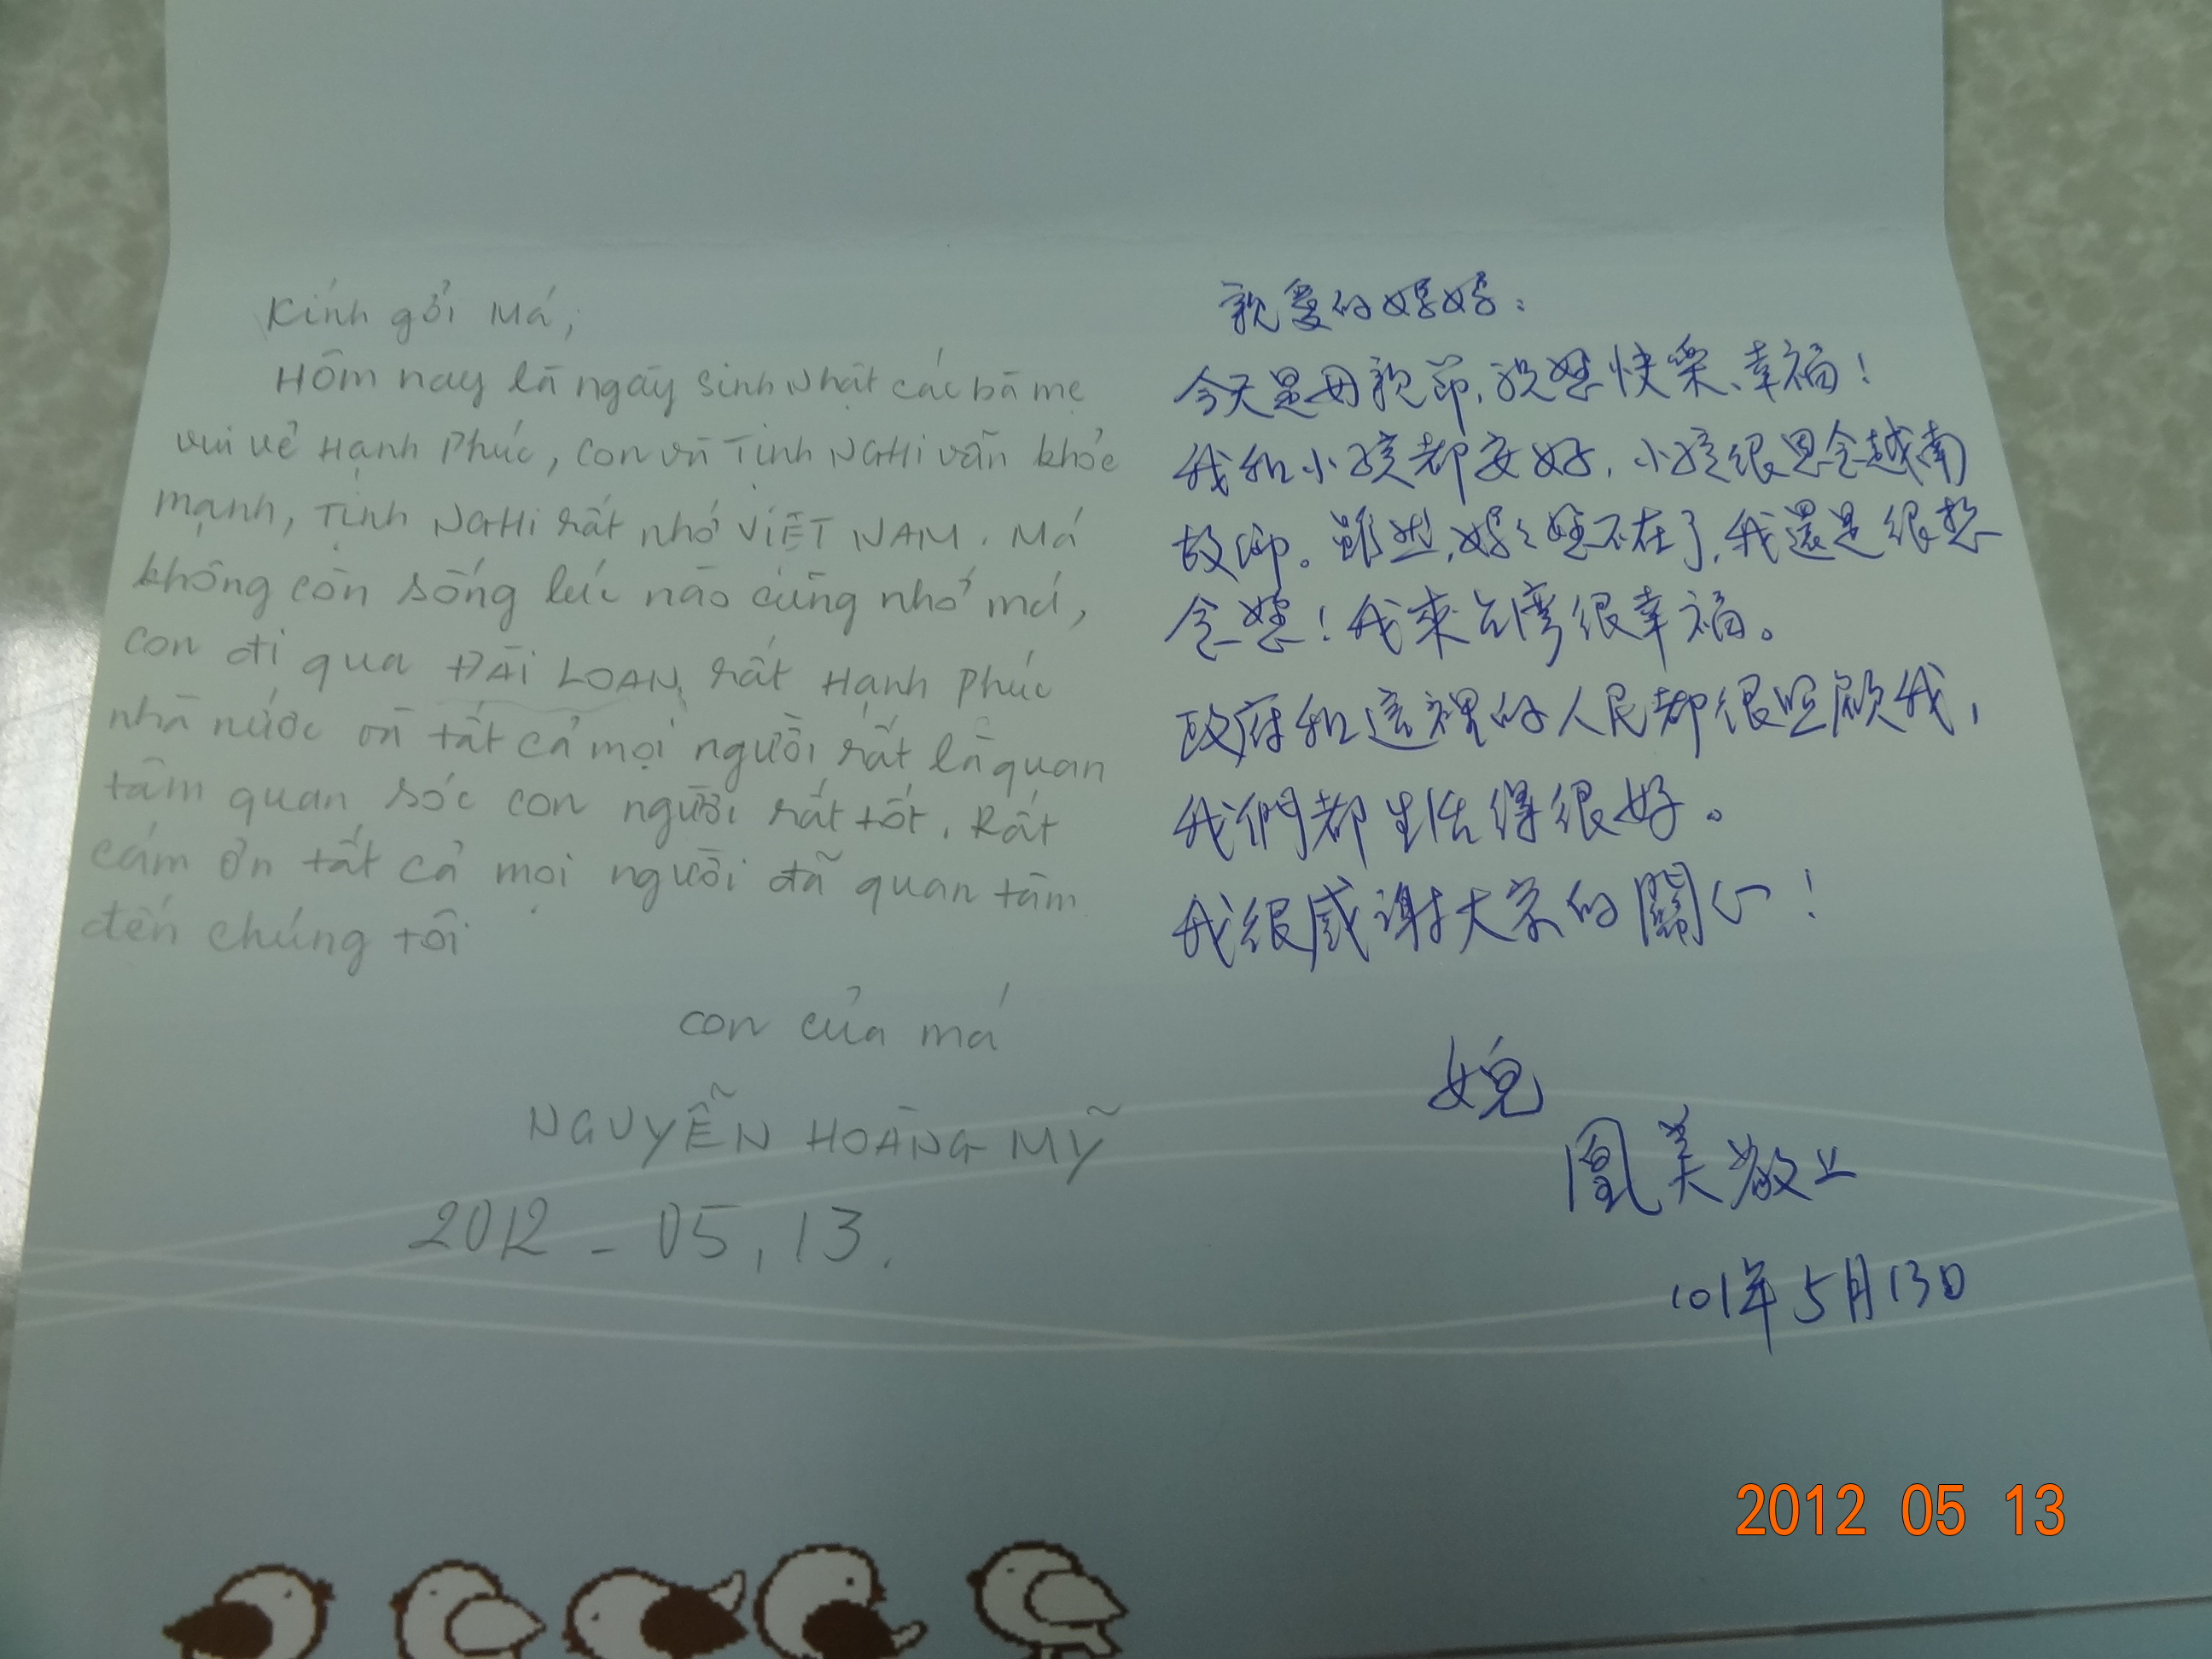 Kính gởi Má,
Hôm nay là ngày sinh Nhật các bà mẹ
vui vẻ Hạnh Phúc, con và Tịnh NGHi vẫn khỏe
mạnh, Tịnh NGHi rất nhớ ViỆT NAM. Má
không còn sống lúc nào cũng nhớ má,
con đi qua ĐÀi LOAN rất Hạnh phúc
nhà nước và tất cả mọi người rất là quan
tâm quan sóc con người rất tốt. Rất
cám ơn tất cả mọi người đã quan tâm
đến chúng tôi
con của má
NGUYỄN HOÀNG MỸ
2012 - 05, 13.
親愛的媽媽：
今天是母親節,祝您快樂、幸福！
我和小孩都安好,小孩很思念越南
故鄉。雖然,媽媽不在了,我還是很想
念您！我來台灣很幸福。
政府和這裡的人民都很照顧我,
我們都生活得很好。
我很感謝大家的關心！
女兒
凰美敬上
101年5月13日
2012 05 13